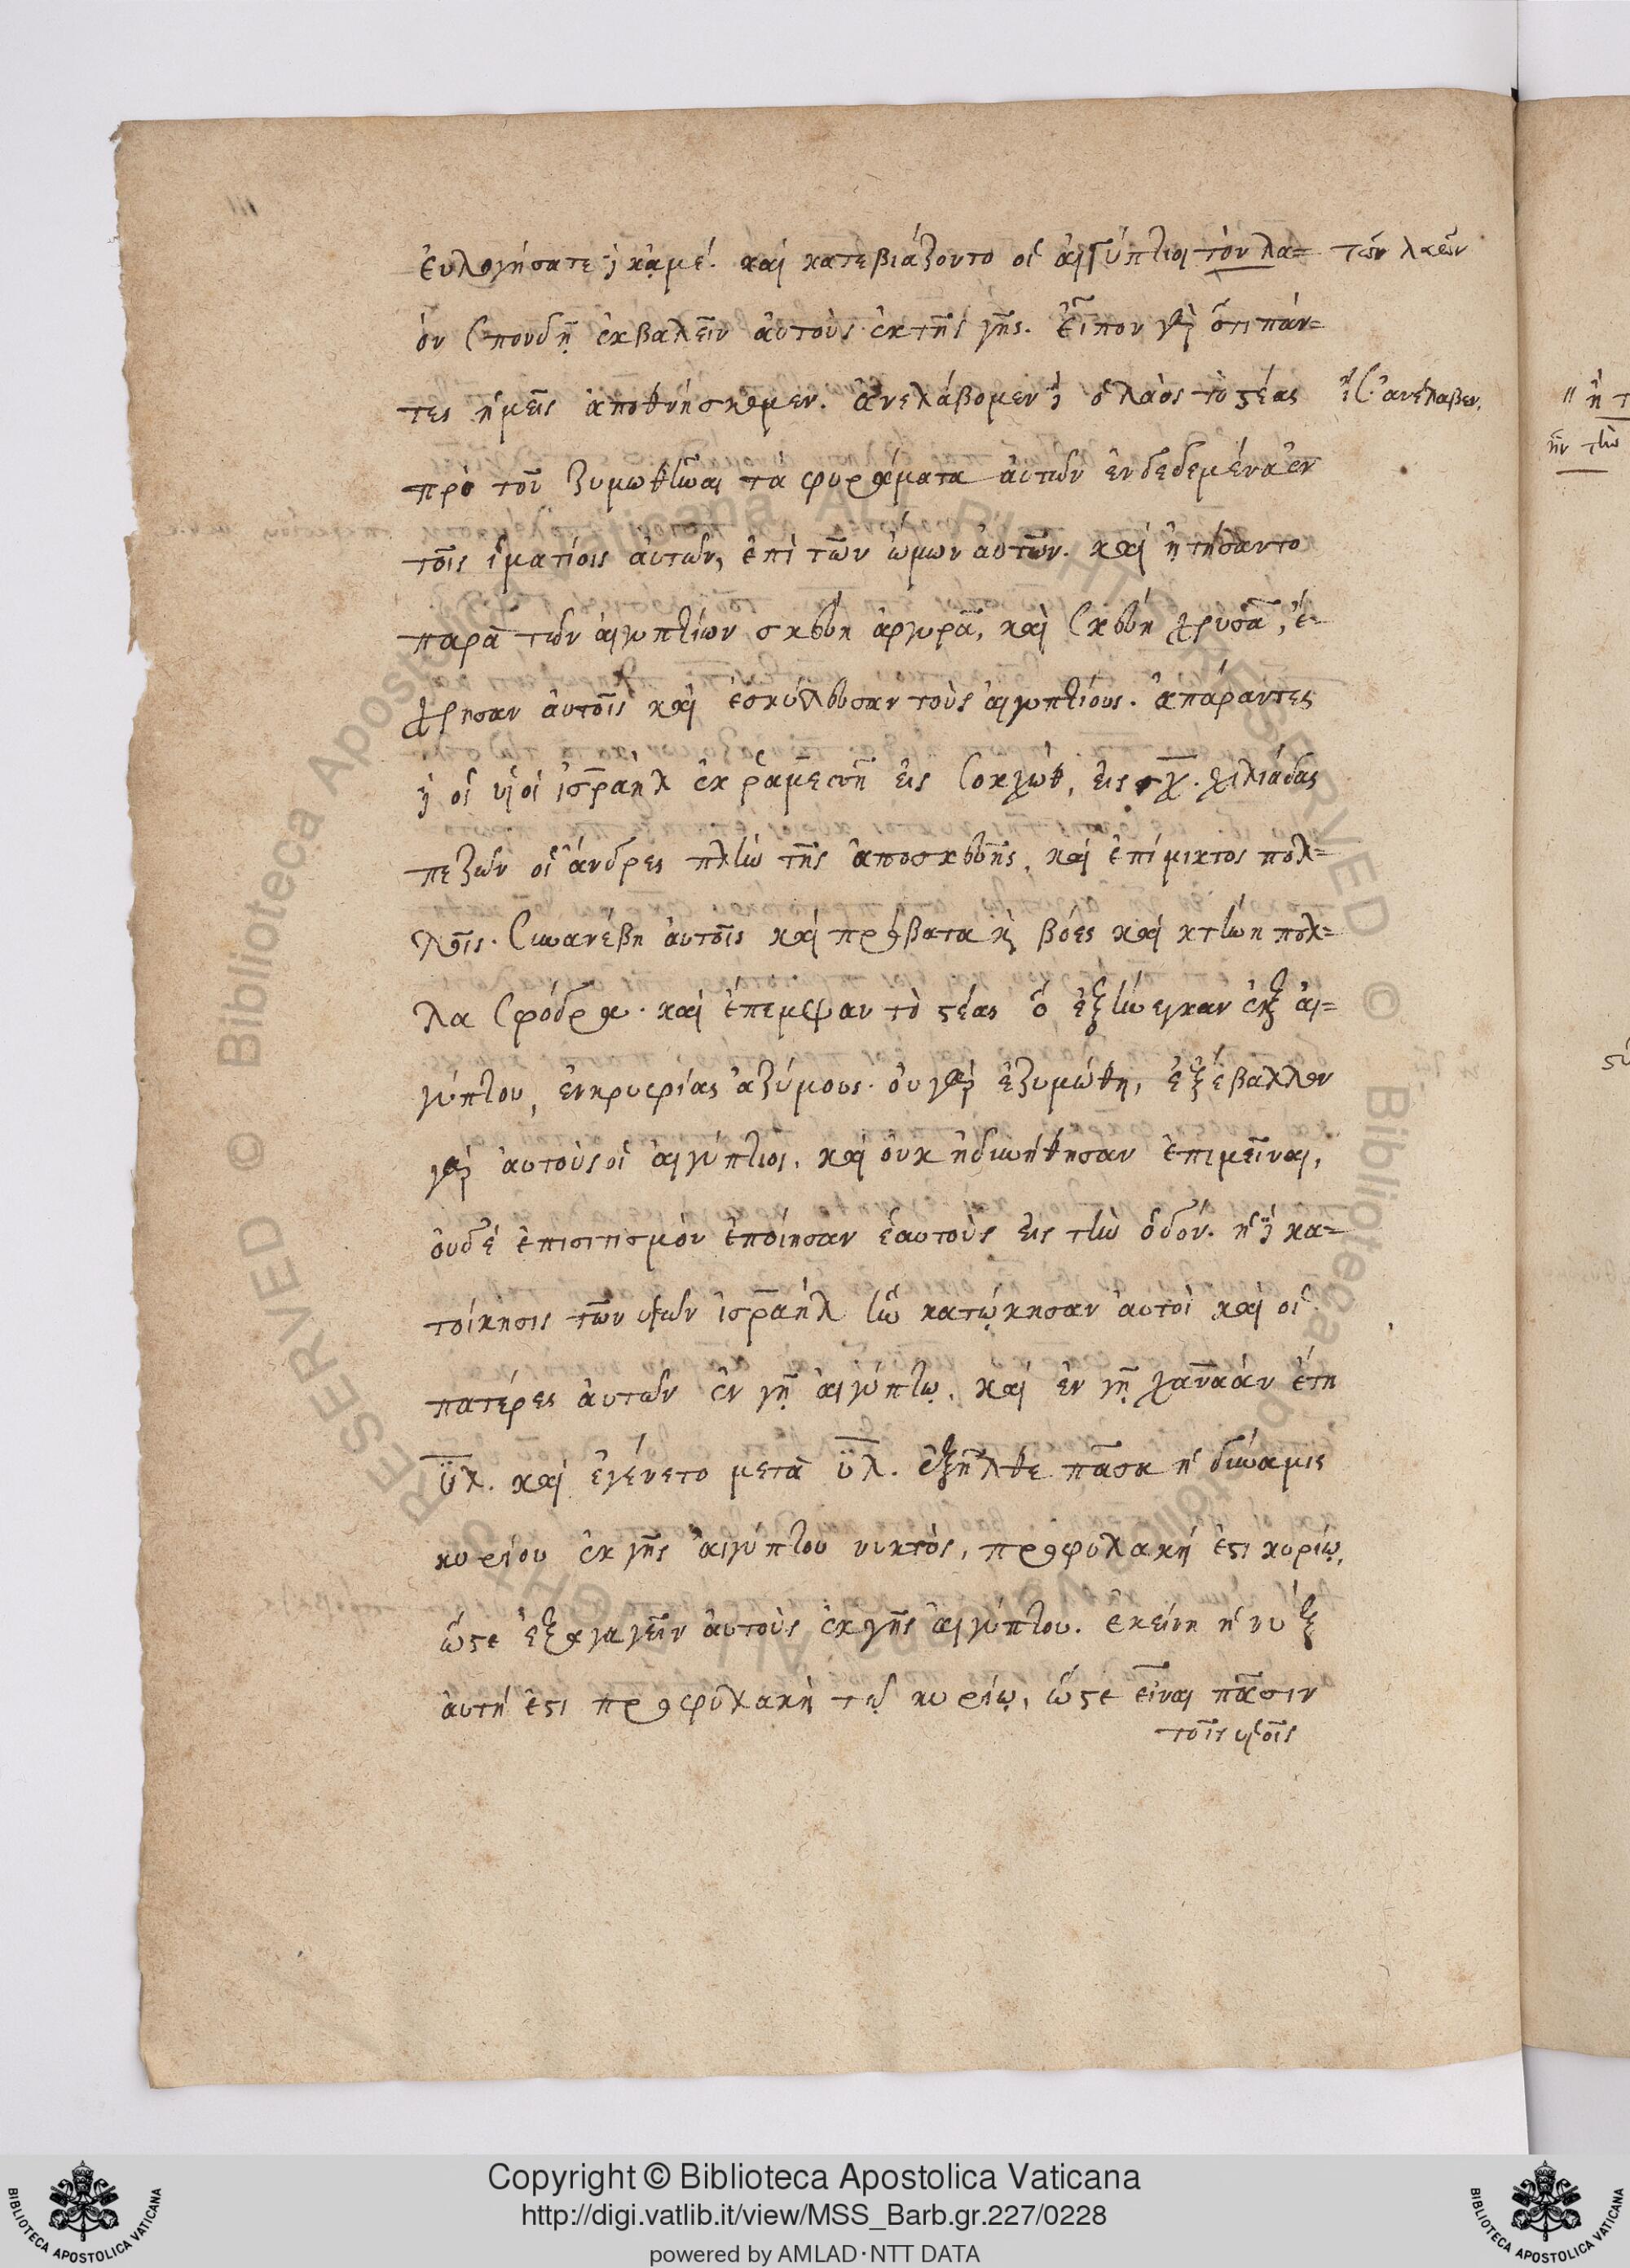 ἐυλογήσατε δὲ κᾀμέ. καὶ κατεβιάζοντο οἱ ἀιγύπτιοι τὸν λα= τῶν λαῶν
ὸν σπουδῇ ἐκβαλεῖν ἀυτοὺς ἐκ τῆς γῆς. εἶπον γὰρ ὅτι πάν=
τες ἡμεῖς ἀποθνήσκομεν. ἀνελάβομεν δὲ ὁ λαὸς τὸ στέας ἀνέλαβεν.
πρὸ τοῦ ζυμωθῆναι τὰ φυράματα ἀυτῶν ἐνδεδεμένα ἐν
τοῖς ἱματίοις ἀυτῶν, ἐπὶ τῶν ὤμων ἀυτῶν. καὶ ᾐτήσαντο
παρὰ τῶν ἀιγυπτίων σκεύη ἀργυρᾶ, καὶ σκεύη χρυσᾶ, ἔ-
χρησαν ἀυτοῖς καὶ ἐσκύλευσαν τοὺς ἀιγυπτίους. ἀπάραντες
δὲ οἱ υἱοὶ ἰσραὴλ ἐκ ῥαμεσσῆ εἰς σοκχώθ, εἰς χ. χιλιάδας
πεζῶν οἱ ἄνδρες πλὴν τῆς ἀποσκευῆς, καὶ ἐπίμικτος πολ=
λοῖς. συνανέβη ἀυτοῖς καὶ πρόβατα κ βόες καὶ κτήνη πολ=
λα σφόδρα. καὶ ἔπεμψαν τὸ στέας ὃ ἐξήνεγκαν ἐξ ἀι=
γύπτου, ἐνκρυφίας ἀζύμους. ὀυ γὰρ ἐζυμώθη, ἐξέβαλλον
γὰρ ἀυτοὺς οἱ ἀιγύπτιοι, καὶ ὀυκ ἠδυνήθησαν ἐπιμεῖναι,
ὀυδὲ ἐπισιτισμὸν ἐποίησαν ἑαυτοὺς εἰς τὴν ὁδόν. ἡ δὲ κα=
τοίκησις τῶν υἱῶν ἰσραὴλ ἣν κατῴκησαν ἀυτοὶ καὶ οἱ
πατέρες ἀυτῶν ἐν γῇ ἀιγύπτῳ, καὶ ἐν γῇ χαναὰν ἔτη
υλ. καὶ ἐγένετο μετὰ υλ. ἐξῆλθε πᾶσα ἡ δύναμις
κυρίου ἐκ γῆς ἀιγύπτου νυκτὸς, προφυλακή ἐστι κυρίῳ,
ὥστε ἐξαγαγεῖν ἀυτοὺς ἐκ γῆς ἀιγύπτου. ἐκείνη ἡ νυξ
ἀυτή ἐστι προφυλακὴ τῷ κυρίῳ, ὥστε εἶναι πᾶσιν
τοῖς υἱοῖς
Copyright © Biblioteca Apostolica Vaticana
http://digi.vatlib.it/view/MSS_Barb.gr.227/0228
powered by AMLAD·NTT DATA
BIBLIOTECA APOSTOLICA VATICANA
BIBLIOTECA APOSTOLICA VATICANA